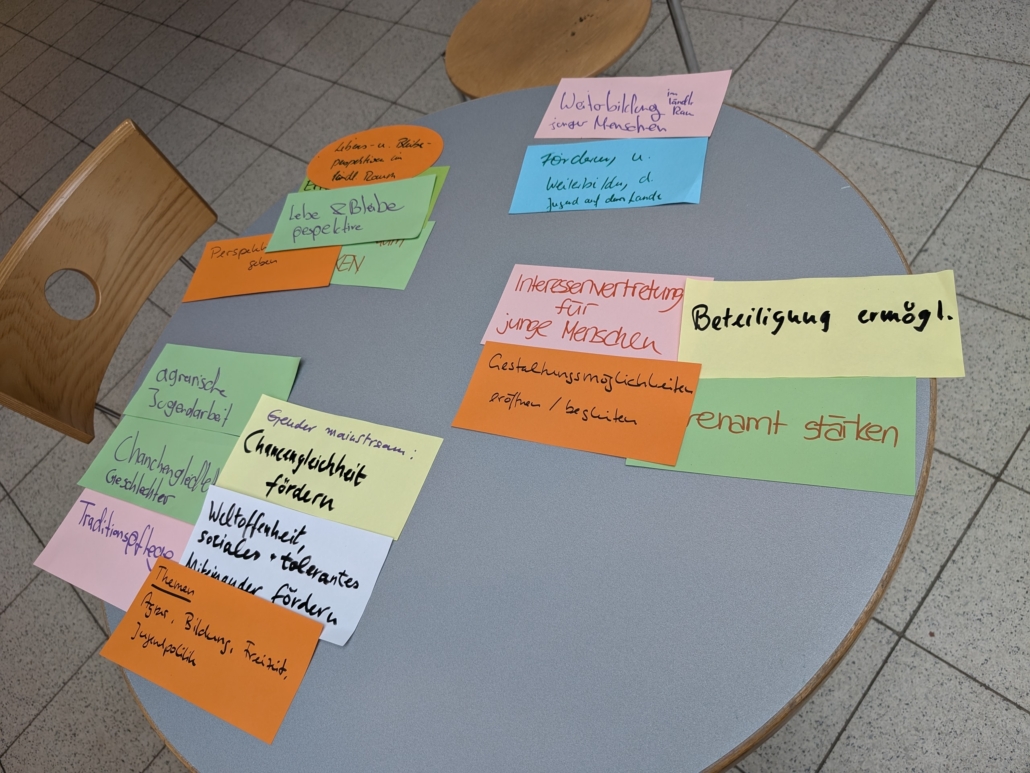 Weiterbildung im
ländl.
Raum
junger Menschen
Fördern, u.
Weiterbildn, d.
Jugend auf dem Lande
Lebens- u. Bleibe-
perspektiven im
ländl Raum
Lebe & Bleibe
pespektive
geben
KEN
Interessenvertretung
für
junge Menschen
Beteiligung ermögl.
Gestaltungsmöglichkeiten
eröffnen / begleiten
renamt stärken
agrarische
Jugendarbeit
Gender mainstream:
Chancengleichheit
fördern
Geschlechter
Traditionspflege
Weltoffenheit,
soziales + tolerantes
Miteinander fördern
Themen
Agrar, Bildung, Freizeit,
Jugendpolitik